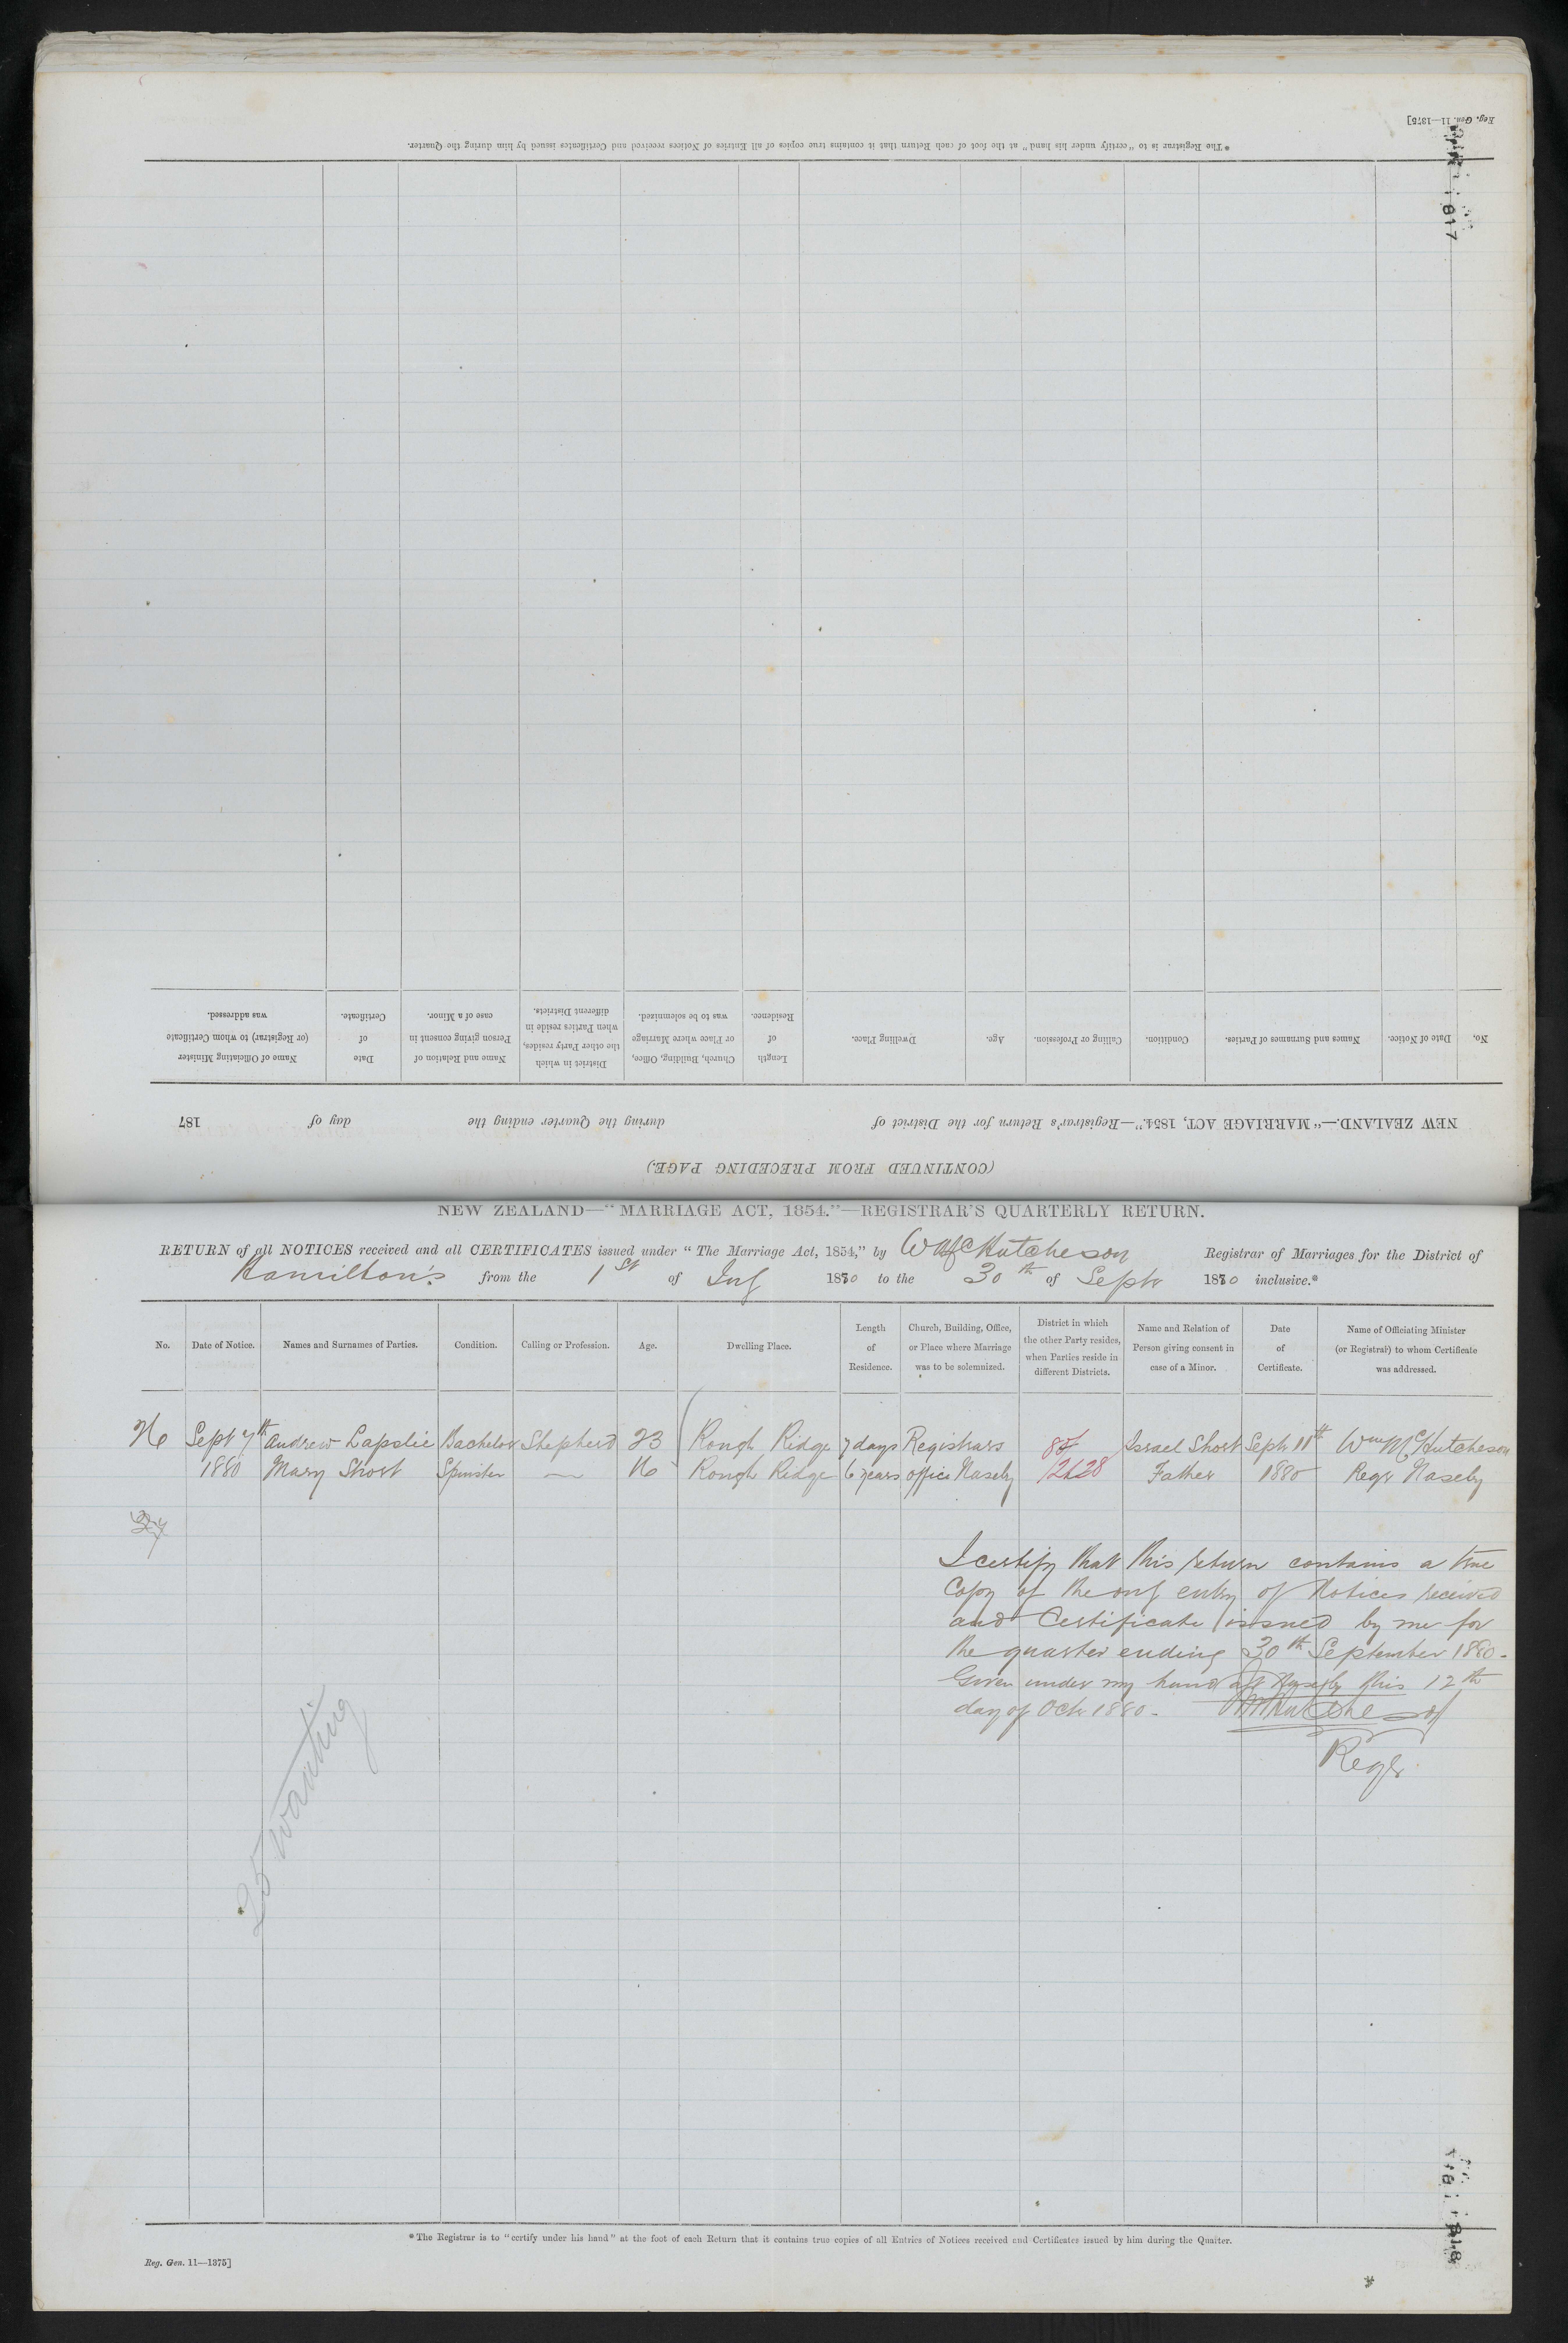 Reg. Gen. 11—1375]
*The Registrar is to "certify under his hand" at the foot of each Return that it contains true copies of all Entries of Notices received and Certificates issued by him during the Quarter.
1817
No.
Date of Notice.
Names and Surnames of Parties.
Condition.
Calling or Profession.
Age.
Dwelling Place.
Length of Residence.
Church, Building, Office, or Place where Marriage was to be solemnized.
District in which the other Party resides, when Parties reside in different Districts.
Name and Relation of Person giving consent in case of a Minor.
Date of Certificate.
Name of Officiating Minister (or Registrar) to whom Certificate was addressed.
NEW ZEALAND.—"MARRIAGE ACT, 1854."—Registrar's Return for the District of during the Quarter ending the day of 187
(CONTINUED FROM PRECEDING PAGE.)
NEW ZEALAND—"MARRIAGE ACT, 1854."—REGISTRAR'S QUARTERLY RETURN.
RETURN of all NOTICES received and all CERTIFICATES issued under "The Marriage Act, 1854," by W McHutcheson Registrar of Marriages for the District of
Hamilton's from the 1st of July 1880 to the 30th of Septr 1880 inclusive.*
No.
Date of Notice.
Names and Surnames of Parties.
Condition.
Calling or Profession.
Age.
Dwelling Place.
Length of Residence.
Church, Building, Office, or Place where Marriage was to be solemnized.
District in which the other Party resides, when Parties reside in different Districts.
Name and Relation of Person giving consent in case of a Minor.
Date of Certificate.
Name of Officiating Minister (or Registrar) to whom Certificate was addressed.
26 Sept 7th Andrew Lapslie Bachelor Shepherd 23 Rough Ridge 7 days Registrars Israel Short Sept 11th Wm McHutcheson
1880 Mary Short Spinster — 16 Rough Ridge 6 years office Naseby 2628 Father 1880 Regr Naseby
27
I certify that this return contains a true
Copy of the only entry of Notices received
and Certificate issued by me for
the quarter ending 30th September 1880.
Given under my hand at Naseby this 12th
day of Oct 1880. WMcHutcheson
Regr
25 wanting
*The Registrar is to "certify under his hand" at the foot of each Return that it contains true copies of all Entries of Notices received and Certificates issued by him during the Quarter.
Reg. Gen. 11—1375]
1818